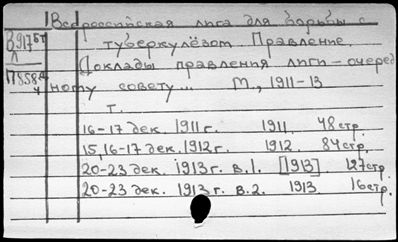 Всероссийская лига для борьбы с
В917 бт туберкулёзом. Правление.
Л Доклады правления лиги – очеред
ному совету... М., 1911–13
т.
16–17 дек. 1911 г. 1911. 48 стр.
15, 16–17 дек. 1912 г. 1912. 84 стр.
20–23 дек. 1913 г. в.1. [1913]. 127 стр
20–23 дек. 1913 г. в.2. 1913. 16 стр.